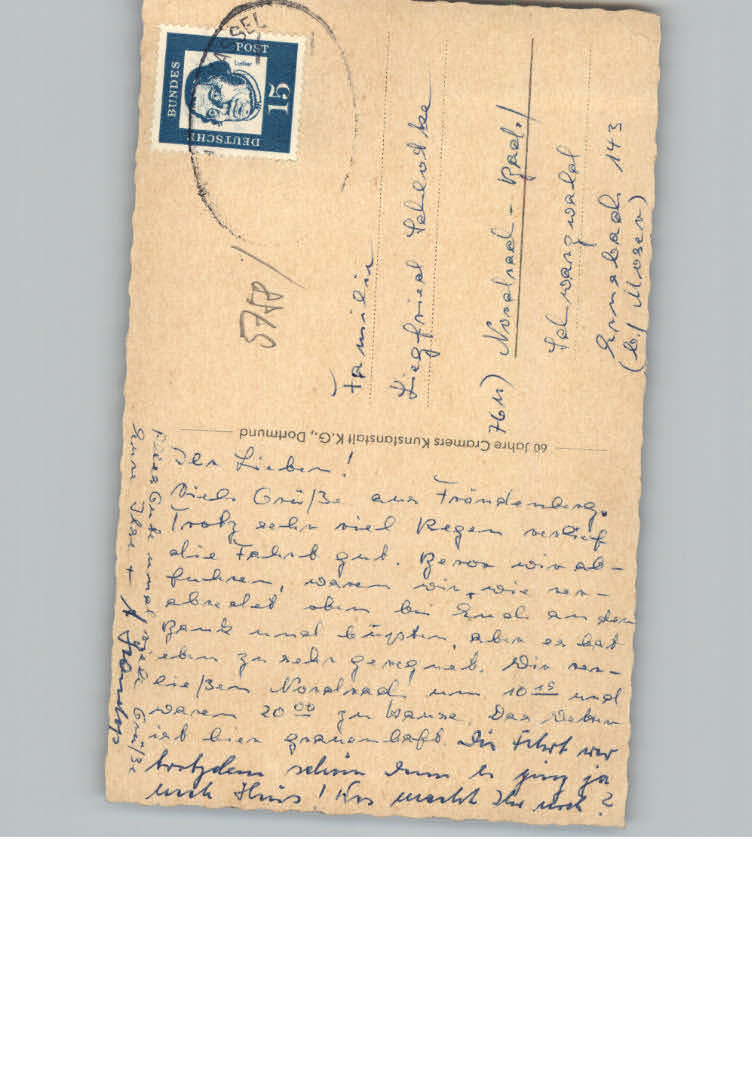 SSEL
DEUTSCHE
BUNDES
POST
Luther
15
5758
Familie
Siegfried Schlottke
7611) Nordrach-Bad./
Schwarzwald
Ernsbach 143
(b./ Moser)
60 Jahre Cramers Kunstanstalt K.G., Dortmund
Ihr Lieben!
Viele Grüße aus Fröndenberg.
Trotz sehr viel Regen verlief
die Fahrt gut. Bevor wir ab-
fuhren, waren wir, wie ver-
abredet oben bei Euch an der
Bank und hupten, aber es hat
eben zu sehr geregnet. Wir ver-
ließen Nordrach um 10 15 und
waren 20 00 zu Hause. Das Wetter
ist hier grauenhaft. Die Fahrt war
trotzdem schön denn es ging ja
nach Haus! Was macht Ihr noch?
Alles Gute und viele Grüße
Eure Ilse +